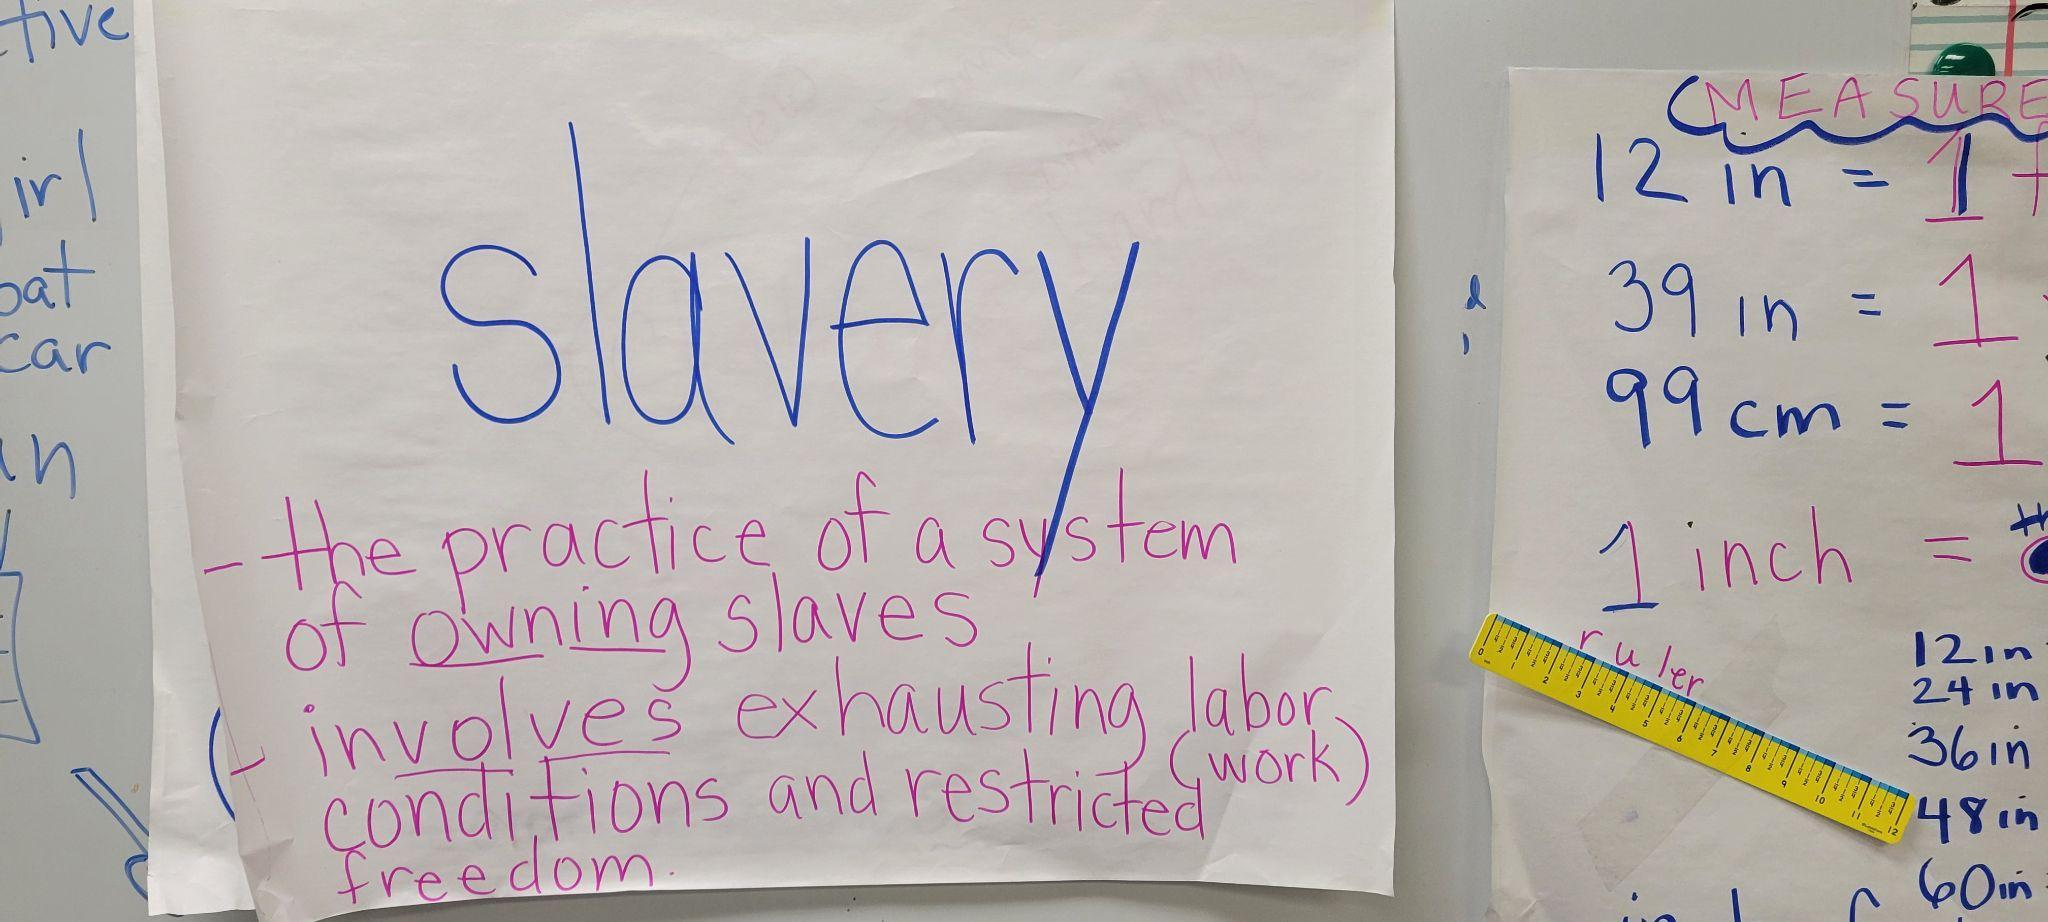 tive
irl
oat
car
slavery
- the practice of a system
of owning slaves
- involves exhausting labor
(work)
conditions and restricted
freedom.
MEASURE
12 in = 1 f
39 in = 1
99 cm = 1
1 inch =
ruler
12 in
24 in
36 in
48 in
60 in